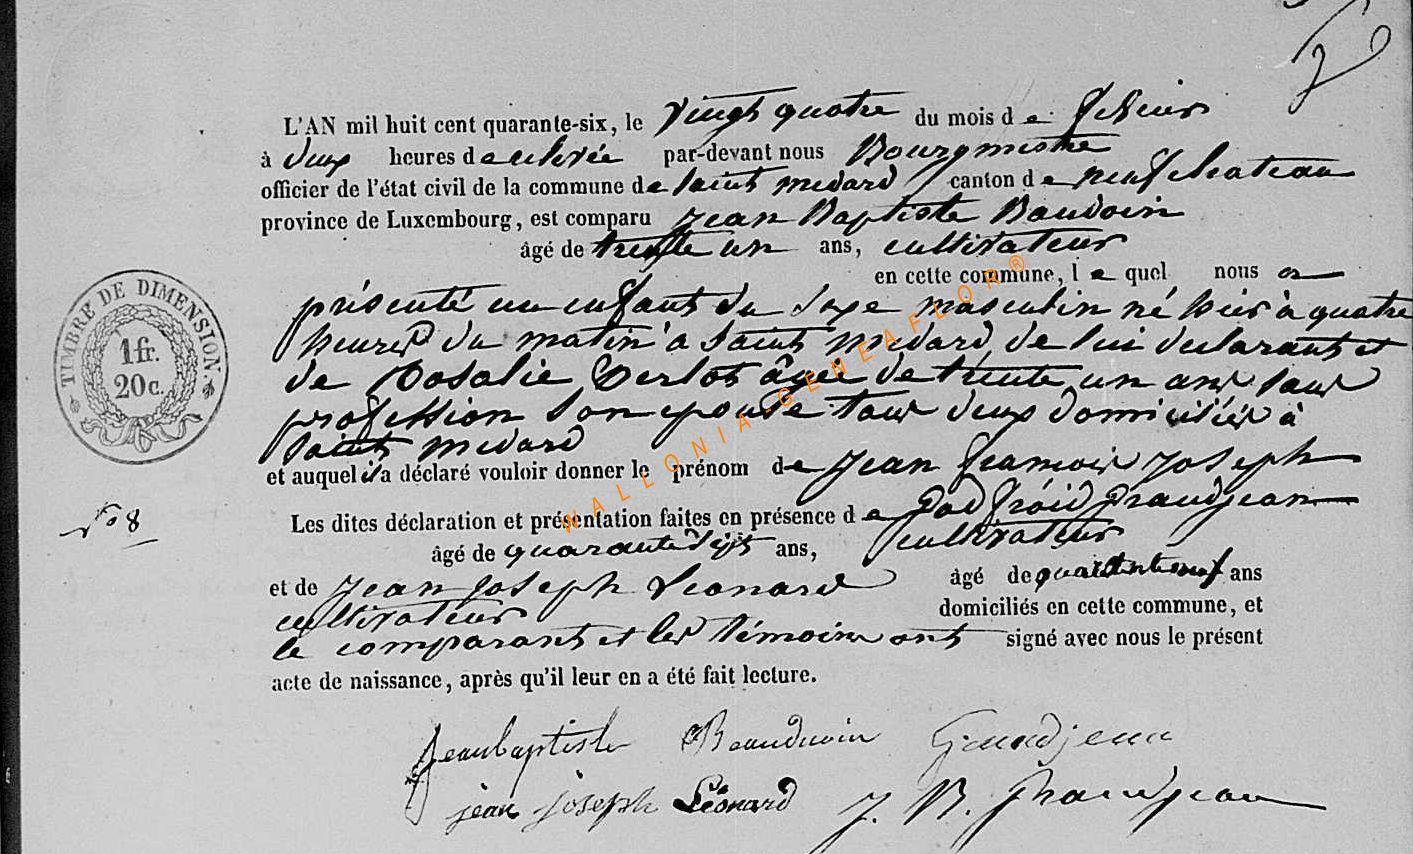 L'AN mil huit cent quarante-six, le vingt quatre du mois de fevrier
à deux heures de relevée par-devant nous Bourgmestre
officier de l'état civil de la commune de Saint medard canton de neufchateau
province de Luxembourg, est comparu Jean Baptiste Baudoin
âgé de trente un ans, cultivateur
en cette commune, lequel nous a
présenté un enfant du sexe masculin né hier à quatre
heures du matin à Saint medard de lui declarant et
de Rosalie agée de trente un ans sans
profession son epouse tous deux domiciliés à
Saint medard
et auquel il a déclaré vouloir donner le prénom de Jean francois Joseph
TIMBRE DE DIMENSION
1 fr.
20 c.
N° 8
Les dites déclaration et présentation faites en présence de godfroid grandjean
âgé de quarante sept ans, cultivateur
et de Jean Joseph Leonard âgé de ans
cultivateur domiciliés en cette commune, et
le comparant et les témoins ont signé avec nous le présent
acte de naissance, après qu'il leur en a été fait lecture.
Jean baptiste Beauduoin Grandjean
jean joseph Léonard J. B. Grandjean
WALLONIA-GENEAFLOR®